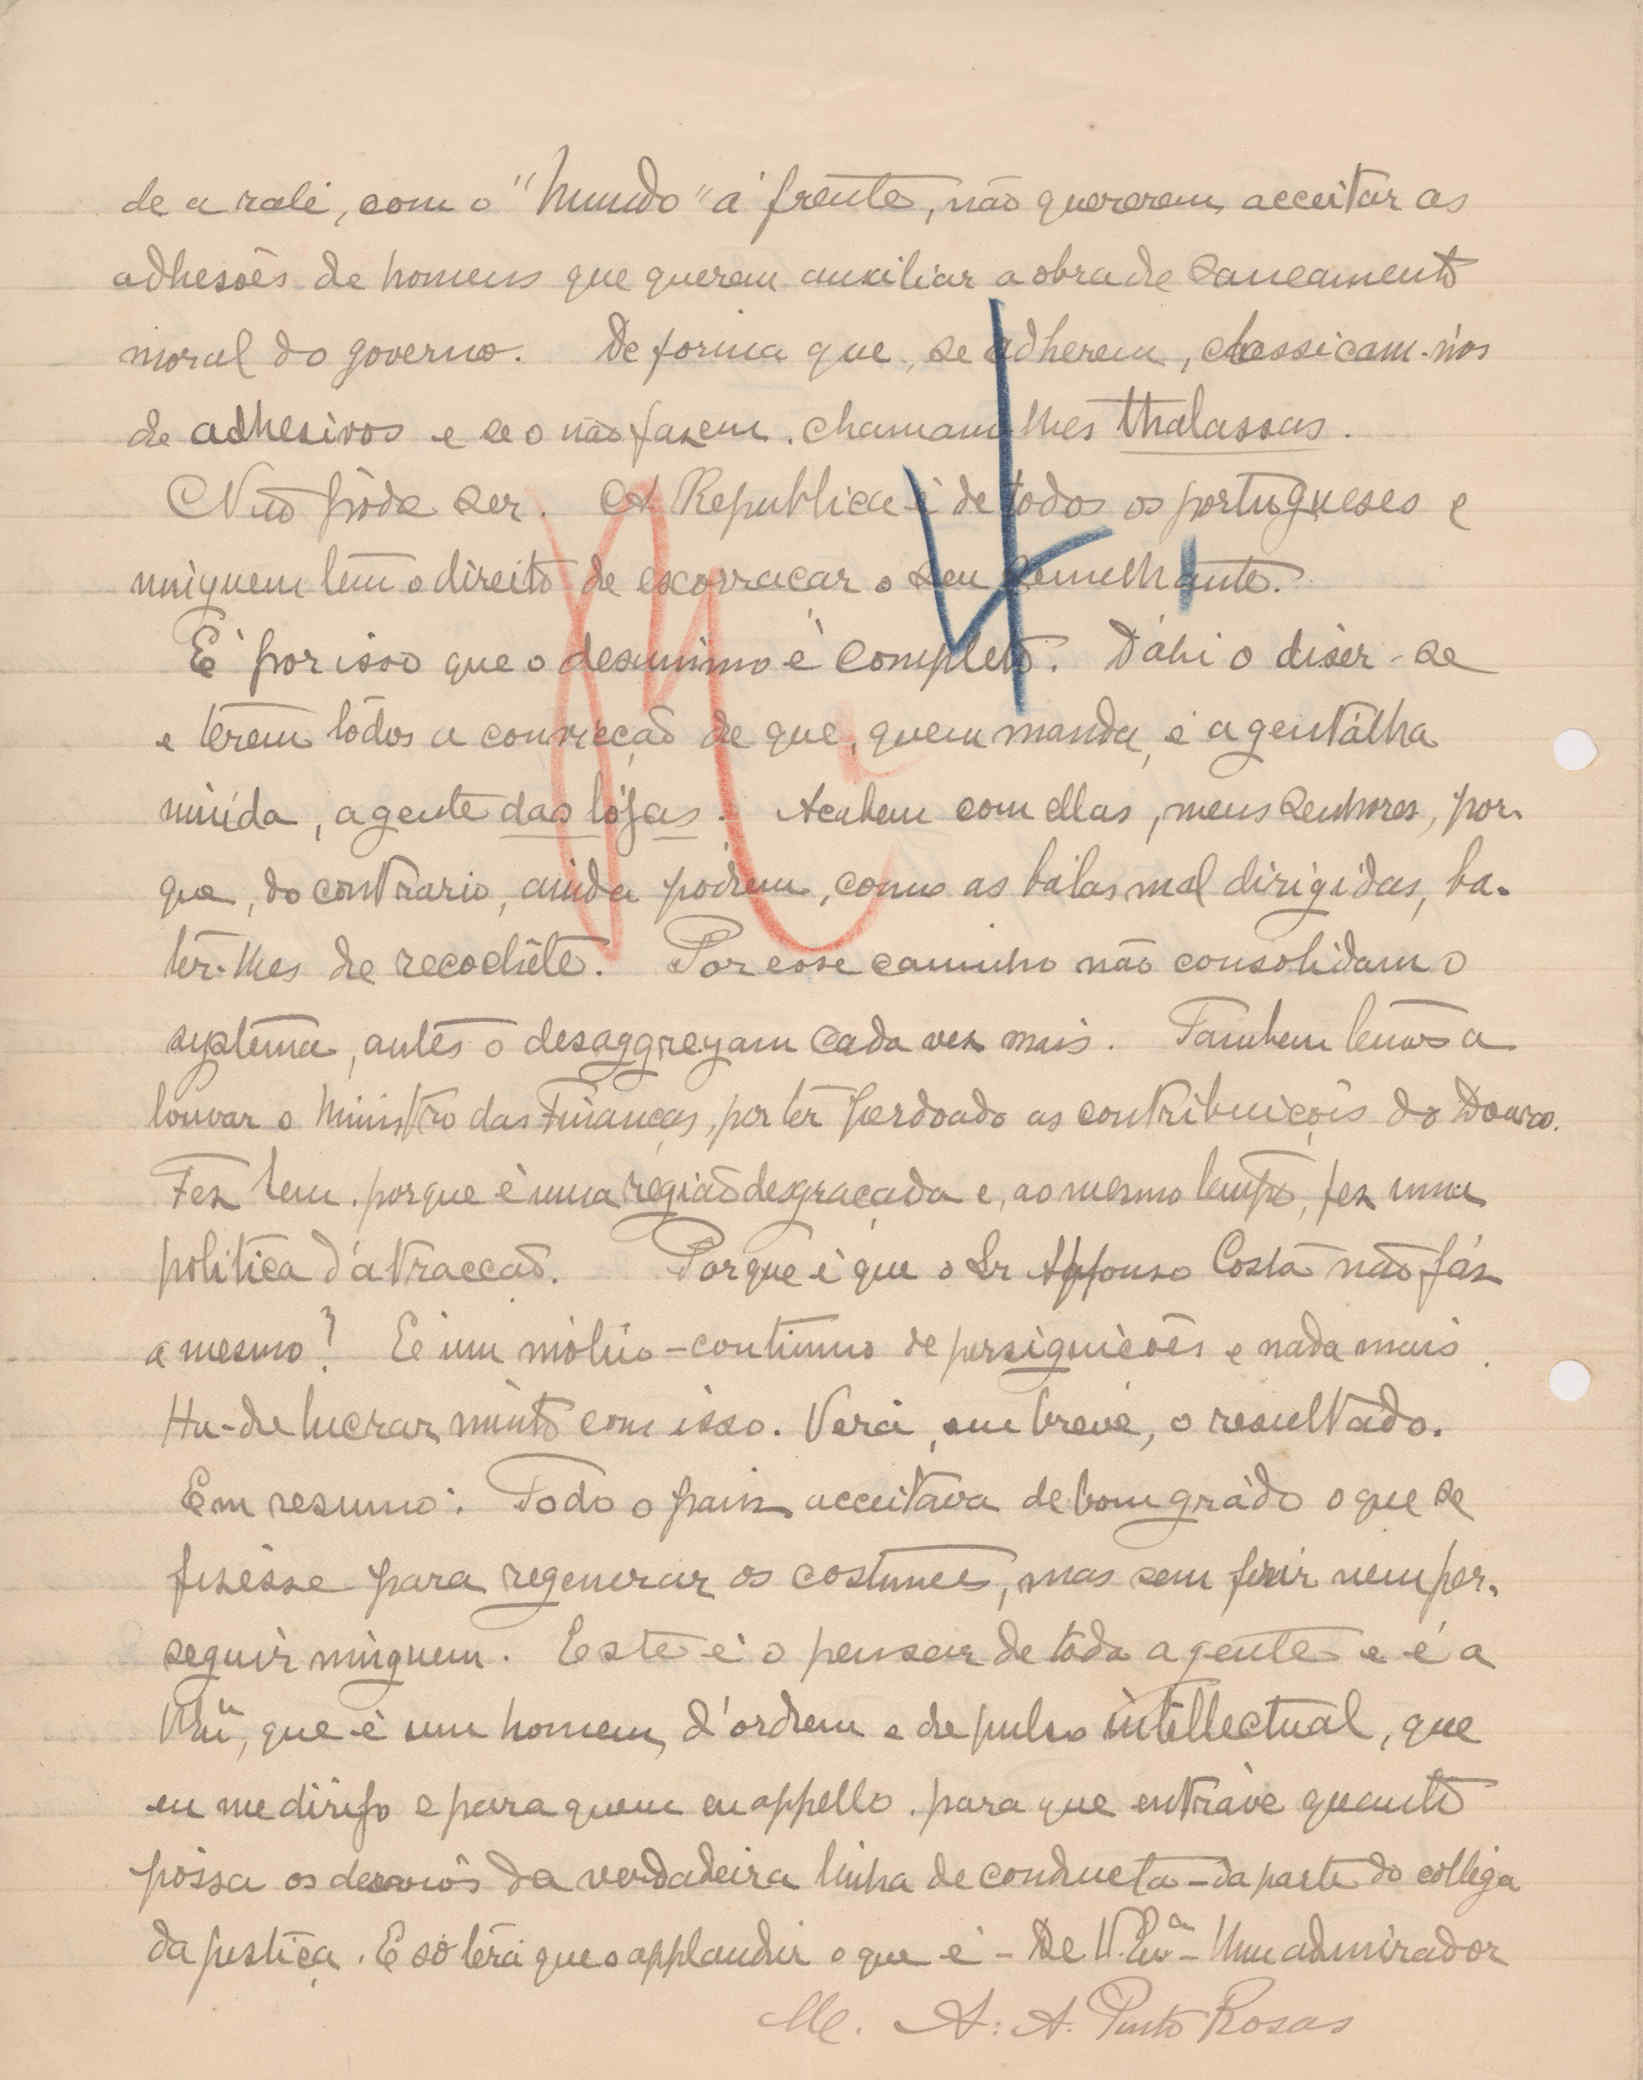 de a ralé, com o "Mundo" á frente, não quererem acceitar as
adhesoẽs de homens que querem auxiliar a obra de saneamento
moral do governo. De forma que, se adherem, classicam-nos
de adhesivos e se o não fazem. chamam lhes thalassas.
Não póde ser. A Republica é de todos os portugueses e
ninguem tem o direito de escorraçar o seu semelhante.
É por isso que o desanimo é completo. Dáhi o disér-se
e terem tódos a convicção de que, quem manda, é a gentálha
miúda, a gente das lójas. Acabem com ellas, meus senhores, por-
que, do contrario, ainda pódem, como as bálas mal dirigidas, ba-
ter-lhes de recochête. Por esse caminho não consolidam o
systema, antes o desaggregam cada vez mais. Tambem temos a
louvar o Ministro das Finanças, por ter perdoado as contribuiçoẽs do Douro.
Fez bem. porque é uma região desgraçada e, ao mesmo tempo, fez uma
politica d'atracção. Porque é que o Sr Affonso Costa não fáz
o mesmo? É um mótuo-continuo de persiguiçoẽs e nada mais.
Ha-de lucrar muito com isso. Verá, em breve, o resultado.
Em resumo: Todo o paiz acceitava de bom grádo o que se
fizésse para regenerar os costumes, mas sem ferir nem per-
seguir ninguem. Este é o pensar de tóda a gente e é a
que é um homem d'ordem e de pulso intellectual, que
eu me dirijo e para quem eu appello. para que entráve quanto
póssa os desvios da verdadeira linha de conducta - da parte do collega
da justiça. E só terá que o applaudir o que é - De V. Exª - Um admirador
M. A. A. Pinto Rosas